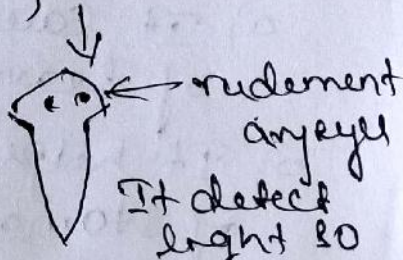 rudement
any eye
It detect
light so